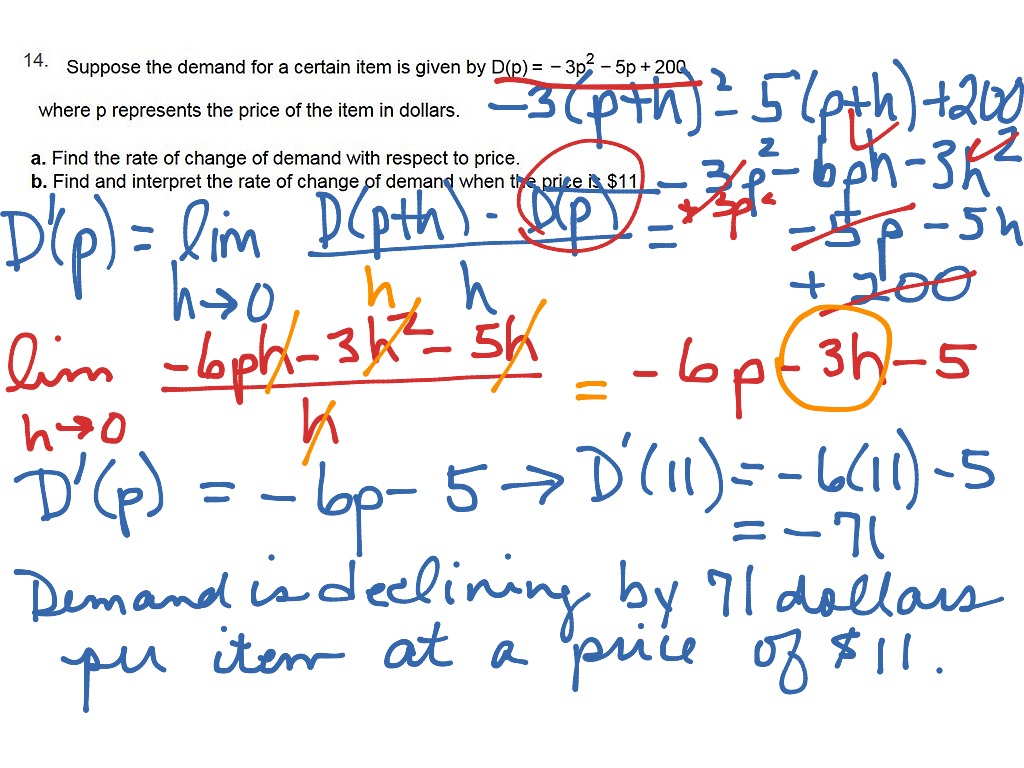 14. Suppose the demand for a certain item is given by D(p) = − 3p² − 5p + 200
−3(p+h)² − 5(p+h) + 200
where p represents the price of the item in dollars.
a. Find the rate of change of demand with respect to price.
b. Find and interpret the rate of change of demand when the price is $11
− 3p² − 6ph − 3h²
+ 3p²
D'(p) = lim D(p+h) - D(p) =
− 5p − 5h
h→0 h
+ 200
h
lim −6ph − 3h² − 5h = −6p − 3h − 5
h→0 h
D'(p) = −6p − 5 → D'(11) = −6(11) − 5
= −71
Demand is declining by 71 dollars
per item at a price of $11.